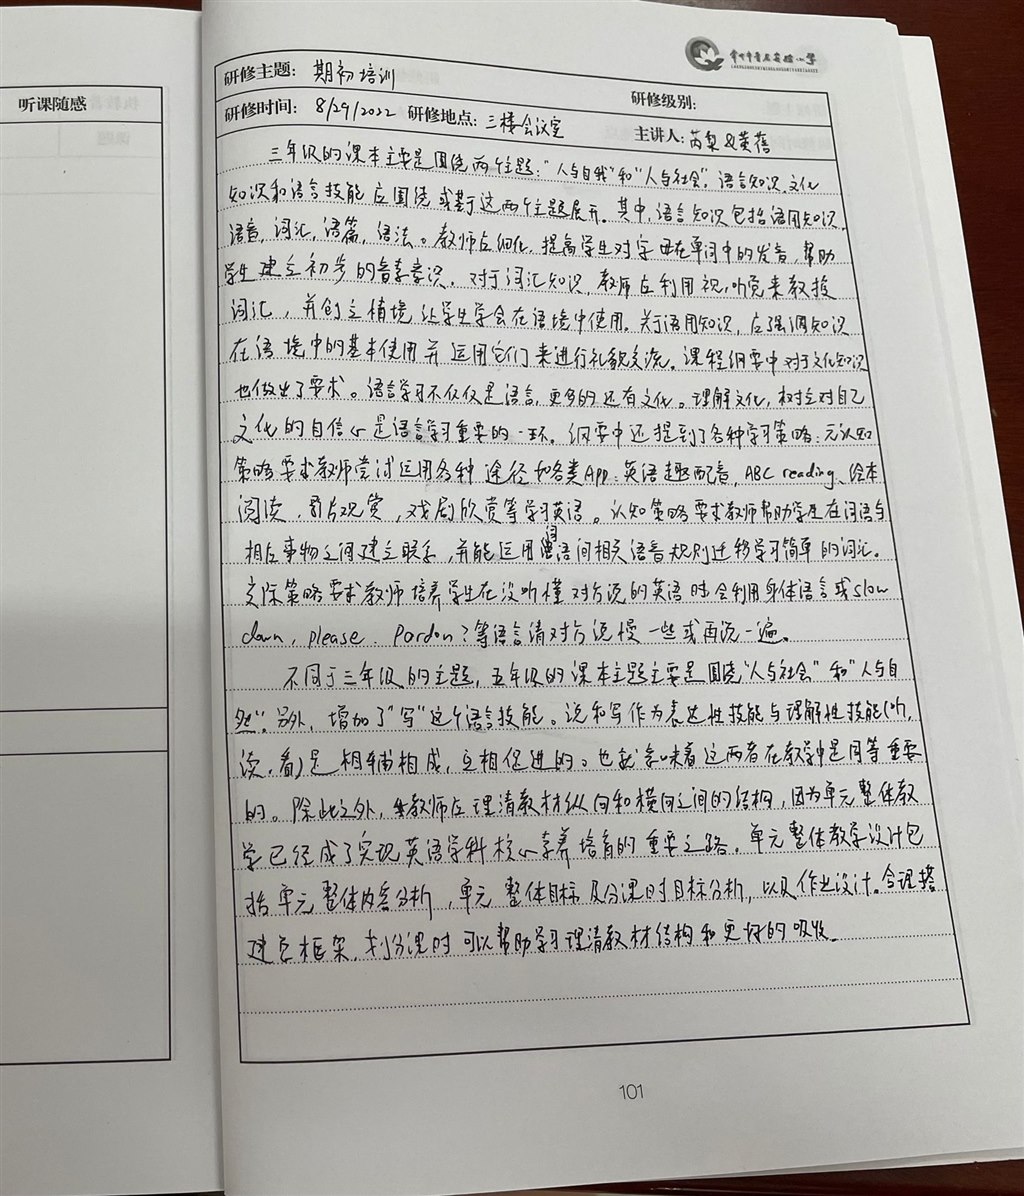 听课随感
研修主题: 期初培训
研修级别:
研修时间: 8/29/2022 研修地点: 三楼会议室 主讲人:
三年级的课本主要是围绕两个主题:“人与自我”和“人与社会”。语言知识,文化
知识和语言技能应围绕或基于这两个主题展开。其中,语言知识包括语用知识,
语音,词汇,语篇,语法。教师应细化,提高学生对字母在单词中的发音,帮助
学生建立初步的音素意识。对于词汇知识,教师应利用视,听觉来教授
词汇,并创立情境让学生学会在语境中使用。关于语用知识,应强调知识
在语境中的基本使用并运用它们来进行礼貌交流。课程纲要中对于文化知识
也做出了要求。语言学习不仅仅是语言,更多的还有文化。理解文化,树立对自己
文化的自信心是语言学习重要的一环。纲要中还提到了各种学习策略:元认知
策略要求教师尝试运用各种途径如各类App:英语趣配音,ABC reading、绘本
阅读,影片观赏,戏剧欣赏等学习英语。认知策略要求教师帮助学生在词语与
相应事物之间建立联系,并能运用词语间相关语音规则迁移学习简单的词汇。
交际策略要求教师培养学生在没听懂对方说的英语时会利用身体语言或slow
down, please. Pardon?等语言请对方说慢一些或再说一遍。
不同于三年级的主题,五年级的课本主题主要是围绕“人与社会”和“人与自
然”。另外,增加了“写”这个语言技能。说和写作为表达性技能与理解性技能(听,
读,看)是相辅相成,互相促进的。也就意味着这两者在教学中是同等重要
的。除此之外,教师应理清教材纵向和横向之间的结构,因为单元整体教
学已经成了实现英语学科核心素养培育的重要之路。单元整体教学设计包
括单元整体内容分析,单元整体目标及分课时目标分析,以及作业设计。合理搭
建它框架,划分课时可以帮助学习理清教材结构和更好的吸收。
101